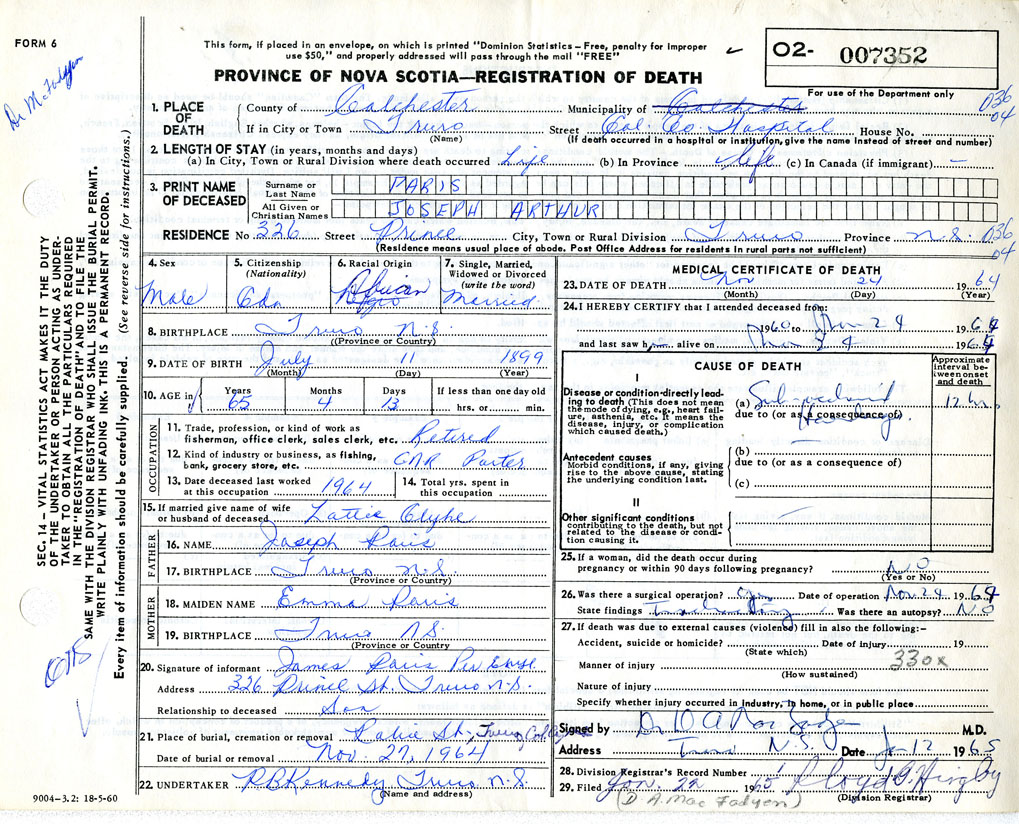 FORM 6
Dr McFadyen
This form, if placed in an envelope, on which is printed "Dominion Statistics – Free, penalty for improper
use $50," and properly addressed will pass through the mail "FREE"
PROVINCE OF NOVA SCOTIA—REGISTRATION OF DEATH
02- 007352
For use of the Department only
036
04
1. PLACE OF DEATH
County of Colchester Municipality of Colchester
If in City or Town Truro Street Col. Co. Hospital House No.
(Name) (If death occurred in a hospital or institution, give the name instead of street and number)
2. LENGTH OF STAY (in years, months and days)
(a) In City, Town or Rural Division where death occurred Life (b) In Province Life (c) In Canada (if immigrant) –
3. PRINT NAME OF DECEASED
Surname or Last Name PARIS
All Given or Christian Names JOSEPH ARTHUR
RESIDENCE No. 326 Street Prince City, Town or Rural Division Truro Province N.S. 036
04
(Residence means usual place of abode. Post Office Address for residents in rural parts not sufficient)
4. Sex
Male
5. Citizenship
(Nationality)
Cdn
6. Racial Origin
African
7. Single, Married, Widowed or Divorced
(write the word)
Married
8. BIRTHPLACE Truro N.S.
(Province or Country)
9. DATE OF BIRTH July 11 1899
(Month) (Day) (Year)
10. AGE in
Years Months Days If less than one day old
65 4 13 hrs. or min.
OCCUPATION
11. Trade, profession, or kind of work as
fisherman, office clerk, sales clerk, etc. Retired
12. Kind of industry or business, as fishing,
bank, grocery store, etc. CNR Porter
13. Date deceased last worked
at this occupation 1964
14. Total yrs. spent in
this occupation
15. If married give name of wife
or husband of deceased Lattie Clyke
FATHER
16. NAME Joseph Paris
17. BIRTHPLACE Truro N.S.
(Province or Country)
MOTHER
18. MAIDEN NAME Emma Paris
19. BIRTHPLACE Truro N.S.
(Province or Country)
20. Signature of informant James Paris Per
Address 326 Prince St. Truro N.S.
Relationship to deceased Son
21. Place of burial, cremation or removal St. Truro
Date of burial or removal Nov. 27, 1964
22. UNDERTAKER R B Kennedy Truro N.S.
(Name and address)
9004-3.2: 18-5-60
MEDICAL CERTIFICATE OF DEATH
23. DATE OF DEATH Nov 24 1964
(Month) (Day) (Year)
24. I HEREBY CERTIFY that I attended deceased from:
1960 to Nov 24 1964
and last saw him alive on Nov 24 1964
CAUSE OF DEATH
Approximate interval between onset and death
I
Disease or condition directly leading to death (This does not mean the mode of dying, e.g., heart failure, asthenia, etc. It means the disease, injury, or complication which caused death.)
(a) 12 hrs
due to (or as a consequence of)
Antecedent causes
Morbid conditions, if any, giving rise to the above cause, stating the underlying condition last.
(b)
due to (or as a consequence of)
(c)
II
Other significant conditions
contributing to the death, but not related to the disease or condition causing it.
25. If a woman, did the death occur during
pregnancy or within 90 days following pregnancy? NO
(Yes or No)
26. Was there a surgical operation? Date of operation Nov 24 1964
State findings Was there an autopsy? NO
27. If death was due to external causes (violence) fill in also the following:–
Accident, suicide or homicide? Date of injury 19
(State which)
330x
Manner of injury
(How sustained)
Nature of injury
Specify whether injury occurred in industry, in home, or in public place
Signed by Dr D A MacFadyen M.D.
Address Truro N.S. Date Jan 12 1965
28. Division Registrar's Record Number 1
29. Filed Jan. 22 1965 Lloyd G. Hingley
(Division Registrar)
(D. A. Mac Fadyen)
SEC. 14 – VITAL STATISTICS ACT MAKES IT THE DUTY
OF THE UNDERTAKER OR PERSON ACTING AS UNDERTAKER
TO OBTAIN ALL THE PARTICULARS REQUIRED
IN THE "REGISTRATION OF DEATH" AND TO FILE THE
SAME WITH THE DIVISION REGISTRAR WHO SHALL ISSUE THE BURIAL PERMIT.
WRITE PLAINLY WITH UNFADING INK. THIS IS A PERMANENT RECORD.
Every item of information should be carefully supplied. (See reverse side for instructions.)